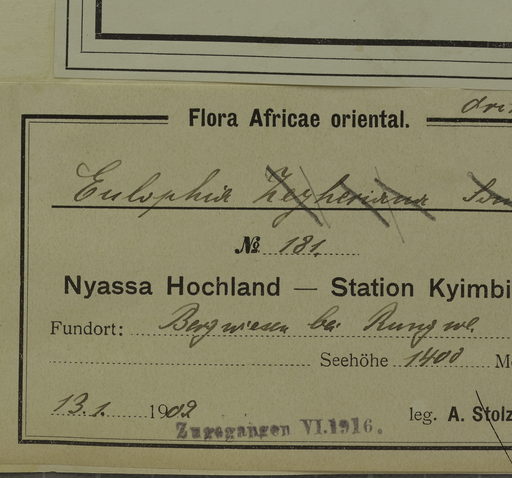 Flora Africae oriental.
Eulophia Zeyheriana
№ 131.
Nyassa Hochland — Station Kyimbi
Fundort: Bergwiesen bei Rungwe.
Seehöhe 1400 M
13.1. 1902
leg. A. Stolz
Zugegangen VI.1916.